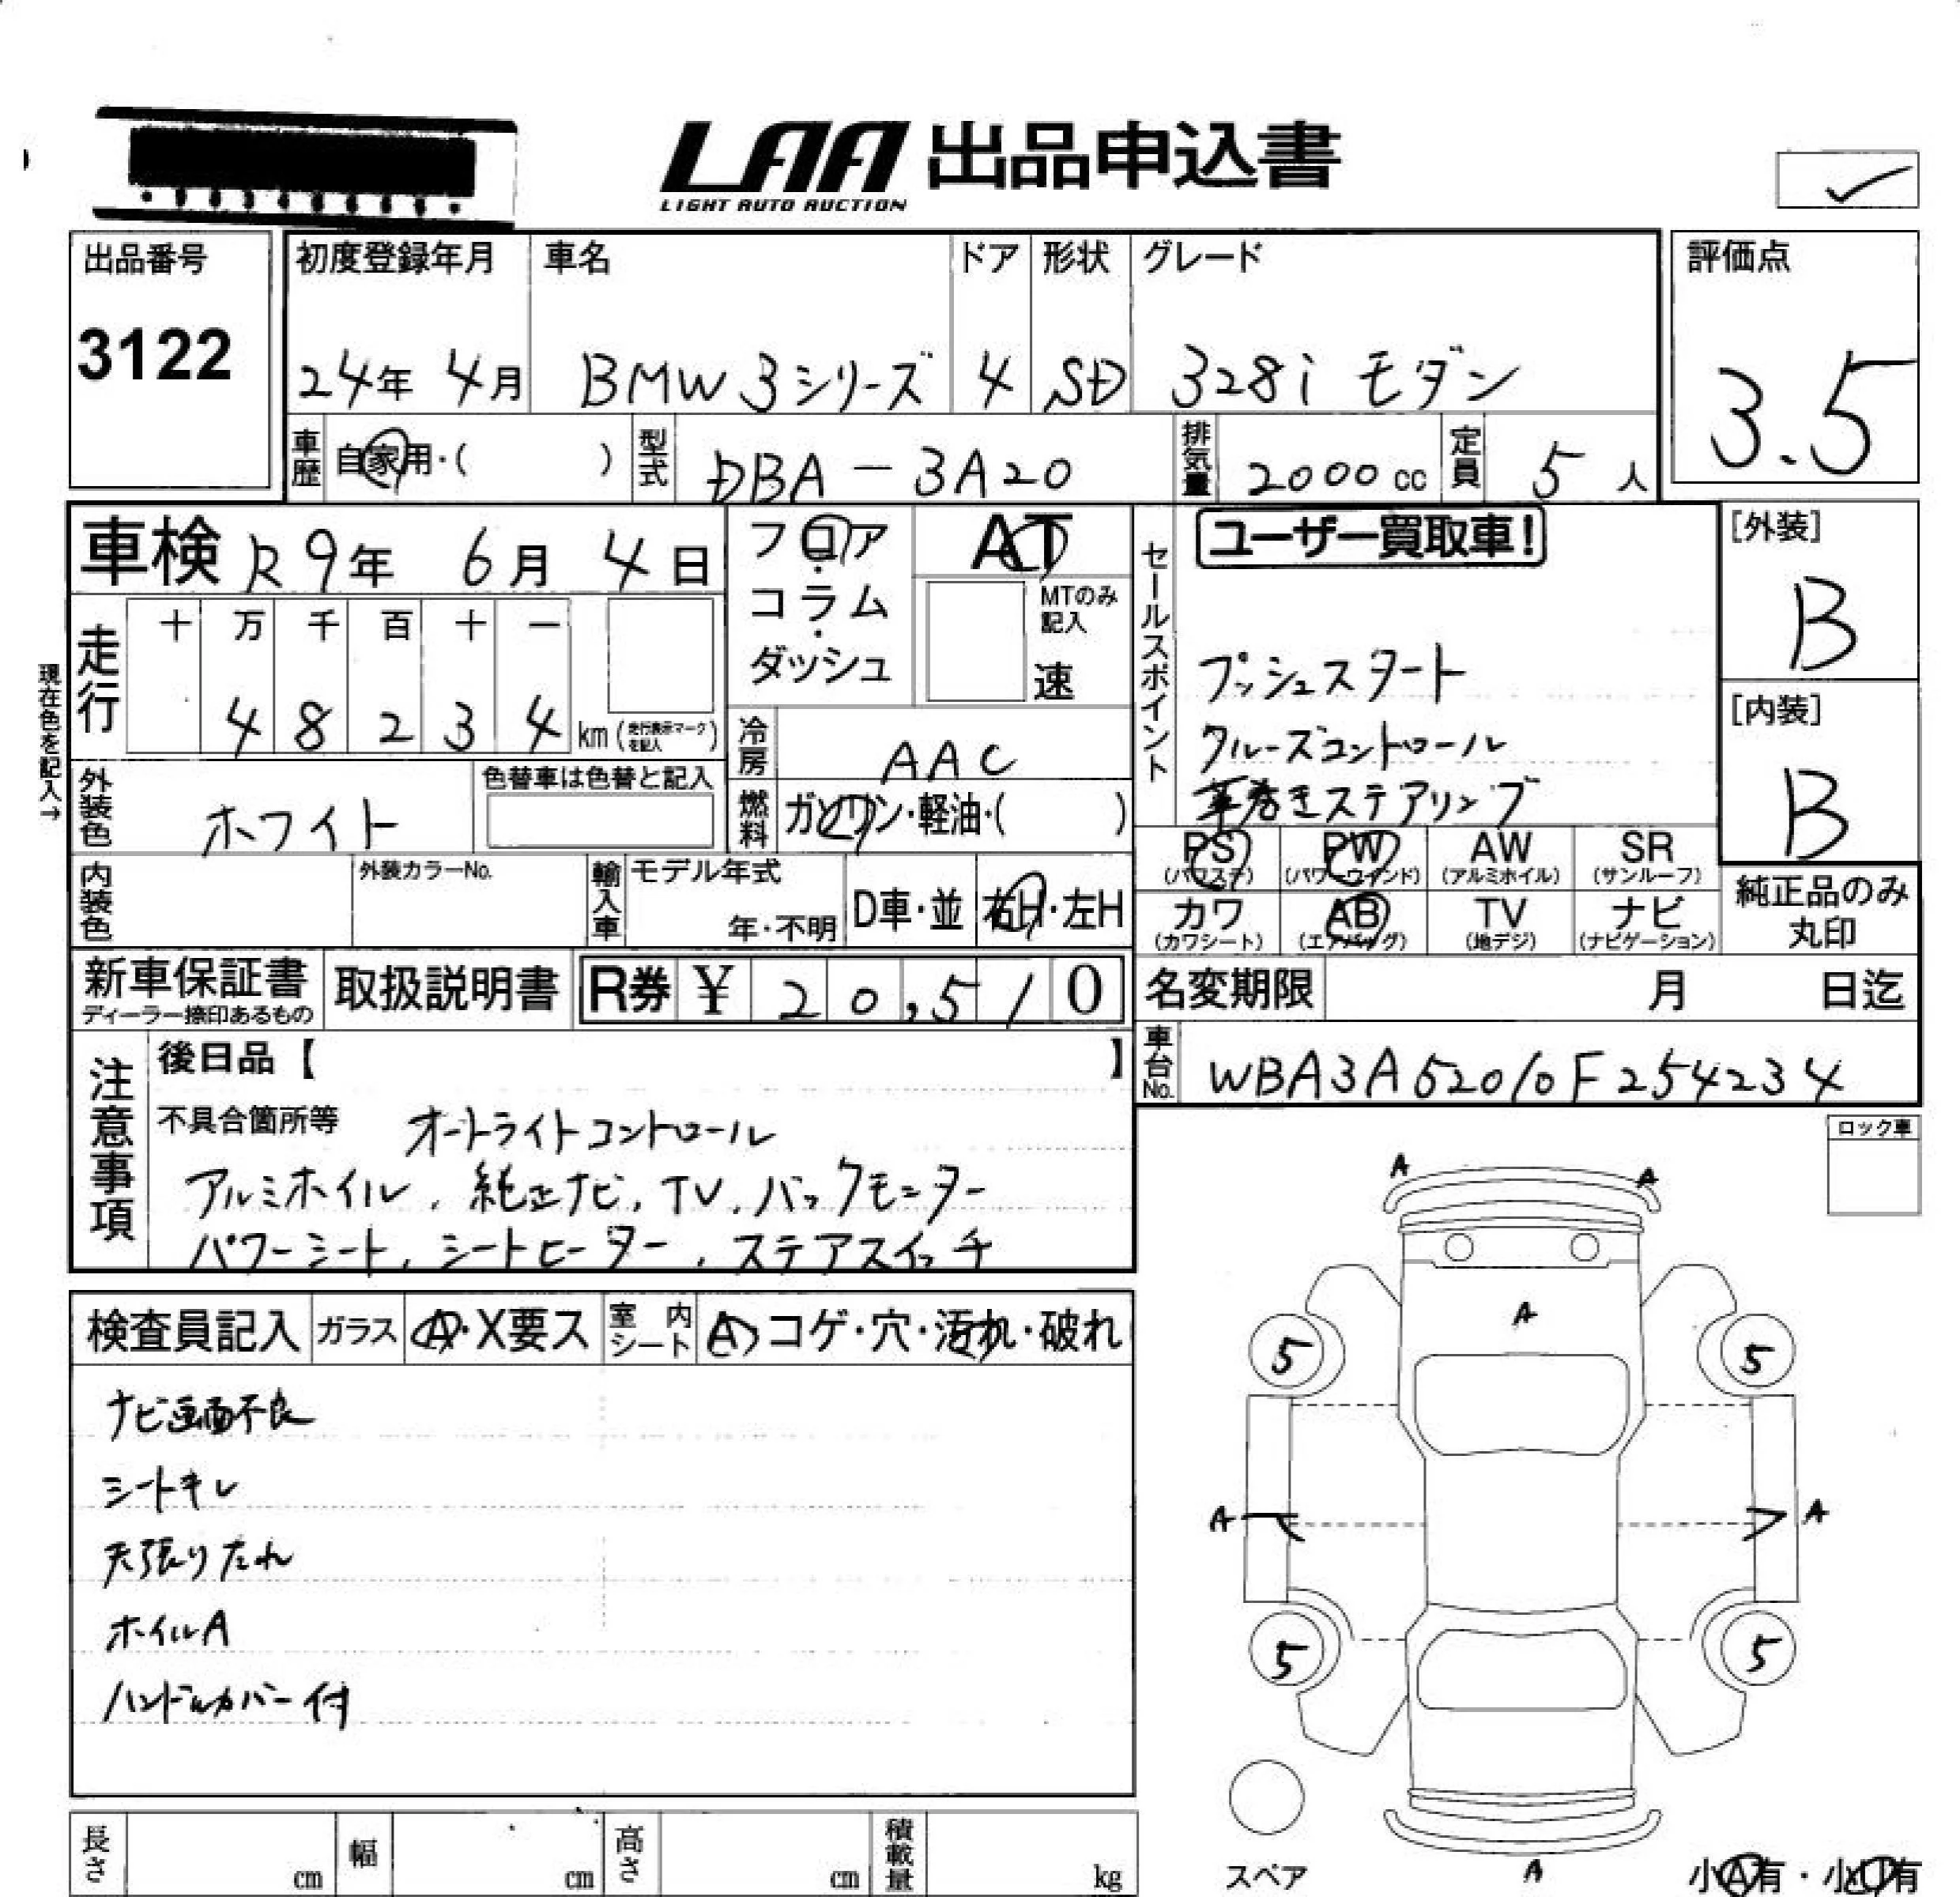 LAA 出品申込書
LIGHT AUTO AUCTION
出品番号
3122
初度登録年月 車名 ドア 形状 グレード
24年 4月 BMW 3シリーズ 4 SD 328i モダン
評価点
3.5
車歴 自家用・( ) 型式 DBA-3A20 排気量 2000cc 定員 5人
車検 R9年 6月 4日
フロア・コラム・ダッシュ
AT
MTのみ記入
速
セールスポイント
ユーザー買取車!
プッシュスタート
クルーズコントロール
革巻きステアリング
[外装]
B
[内装]
B
現在色を記入→
走行 十 万 千 百 十 一
4 8 2 3 4 km(走行表示マークを記入)
冷房 AAC
外装色 ホワイト 色替車は色替と記入
燃料 ガソリン・軽油・( )
PS (パワステ) PW (パワーウインド) AW (アルミホイル) SR (サンルーフ)
カワ (カワシート) AB (エアバッグ) TV (地デジ) ナビ (ナビゲーション)
純正品のみ丸印
内装色 外装カラーNo. 輸入車 モデル年式 年・不明 D車・並 右H・左H
新車保証書 ディーラー捺印あるもの 取扱説明書 R券 ¥ 20,510
名変期限 月 日迄
車台No. WBA3A52010F254234
注意事項
後日品【 】
不具合箇所等 オートライトコントロール
アルミホイル, 純正ナビ, TV, バックモニター
パワーシート, シートヒーター, ステアスイッチ
ロック車
検査員記入 ガラス A・X要ス 室内シート A コゲ・穴・汚れ・破れ
ナビ画面不良
シートキレ
天張りたれ
ホイルA
ハンドルカバー付
A A
A
5 5
A A
5 5
スペア
A
小A有・小U有
長さ cm 幅 cm 高さ cm 積載量 kg